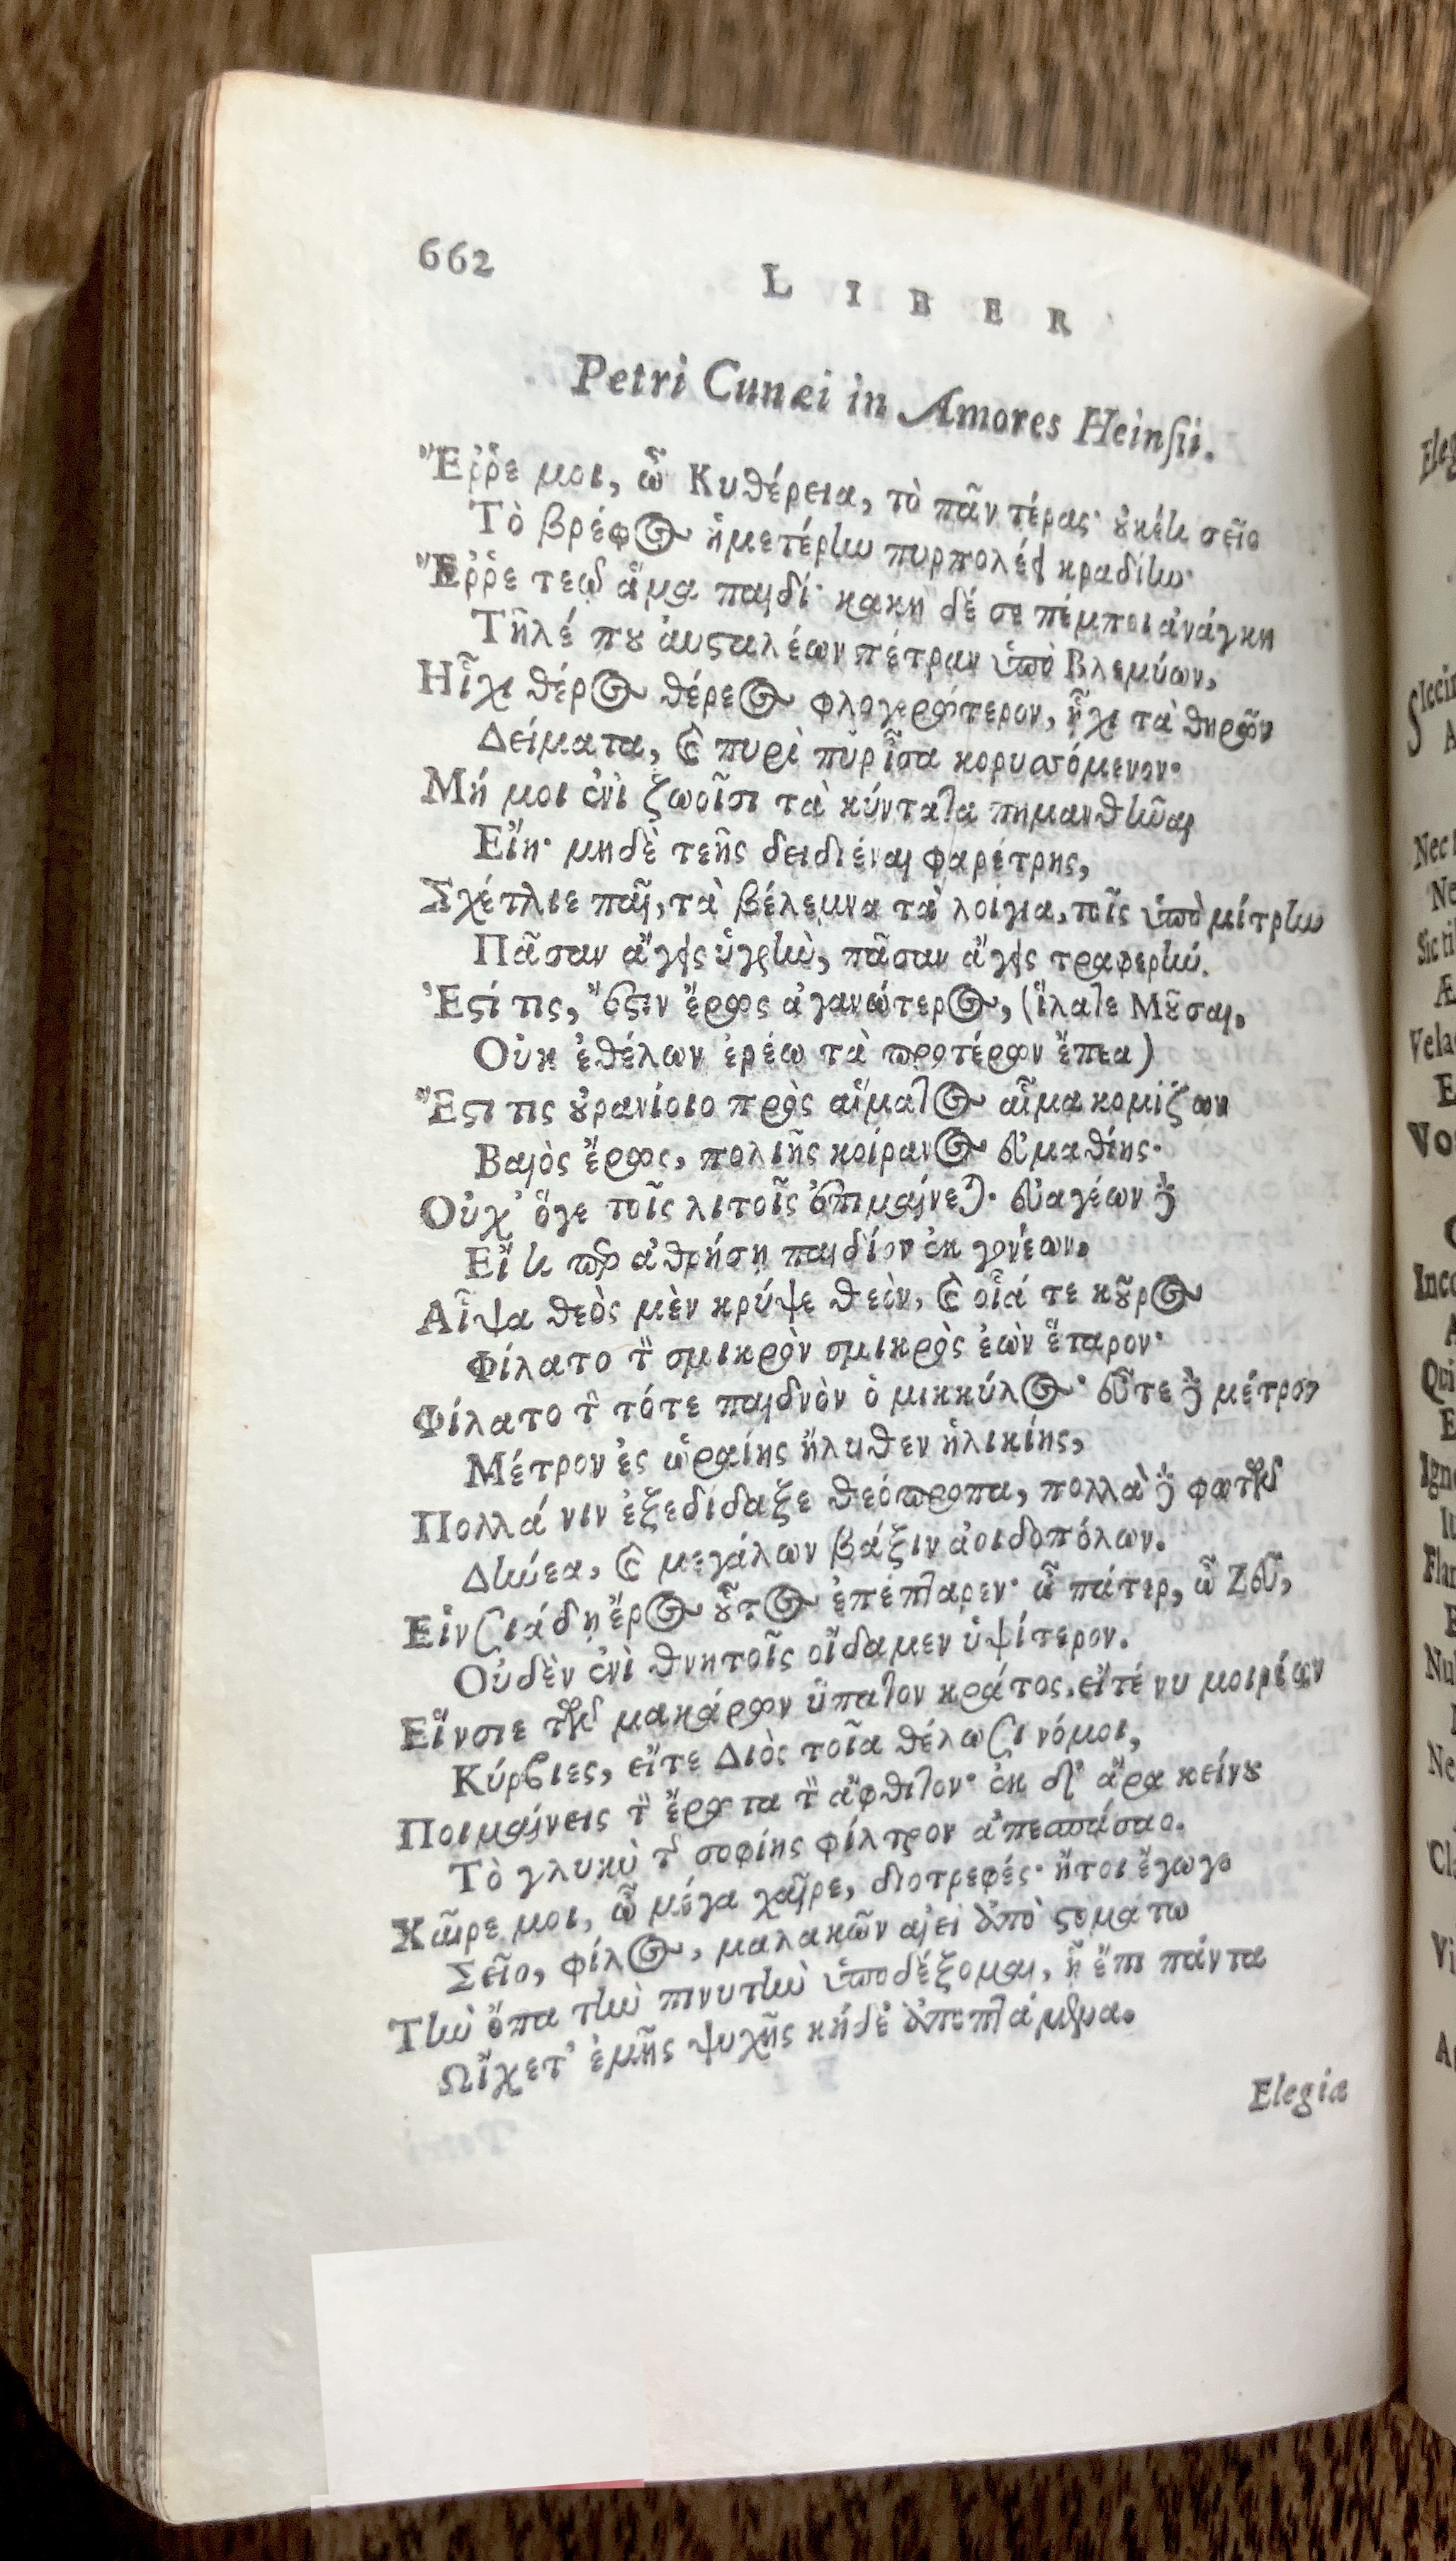 662
LIBER
Petri Cunæi in Amores Heinsii.
Ἔῤῥε μοι, ὦ Κυθέρεια, τὸ πᾶν τέρας· ȣκέτι σεῖο
Τὸ βρέφος ἡμετέρην πυρπολέει κραδίην·
Ἔῤῥε τεῷ ἅμα παιδί· κακὴ δέ σε πέμποι ἀνάγκη
Τῆλέ πȣ αὐσαλέων πέτραν ὑπὸ Βλεμύων,
Ἧχι θέρος θέρεος φλογερώτερον, ἧχι τὰ θηρῶν
Δείματα, καὶ πυρὶ πῦρ ἶσα κορυσσόμενον·
Μή μοι ἐνὶ ζωοῖσι τὰ κύντατα πημανθῆναι
Εἴη· μηδὲ τεῆς δειδιέναι φαρέτρης,
Σχέτλιε παῖ, τὰ βέλεμνα τὰ λοίγια, τοῖς ὑπὸ μίτρην
Πᾶσαν ἄγεις ὑγρὴν, πᾶσαν ἄγεις τραφερήν.
Ἐστί τις, ἔστιν ἔρως ἀγανώτερος, (ἵλατε Μȣ͂σαι,
Οὐκ ἐθέλων ἐρέω τὰ προτέρων ἔπεα)
Ἔστι τις ȣ̓ρανίοιο πρὸς αἵματος αἷμα κομίζων
Βαιὸς ἔρως, πολιῆς κοίρανος εὐμαθίης·
Οὐχ' ὅγε τοῖς λιτοῖς ἐπιμαίνεται· εὐαγέων δὲ
Εἴ τι που ἀθρήσῃ παιδίον ἐκ γονέων.
Αἶψα θεὸς μὲν κρύψε θεὸν, καὶ οἷά τε κȣ͂ρος
Φίλατο τὸν σμικρὸν σμικρὸς ἐὼν ἕταρον·
Φίλατο τὸν τότε παιδνὸν ὁ μικκύλος· εὖτε δὲ μέτρον
Μέτρον ἐς ὡραίης ἤλυθεν ἡλικίης,
Πολλά νιν ἐξεδίδαξε θεόπροπα, πολλὰ δὲ φωτῶν
Δήνεα, καὶ μεγάλων βάξιν ἀοιδοπόλων.
Εἱνσιάδῃ ἔρος ȣ̓͂τος ἐπέπταρεν· ὦ πάτερ, ὦ Ζεῦ,
Οὐδὲν ἐνὶ θνητοῖς οἴδαμεν ὑψίτερον.
Εἵνσιε τῶν μακάρων ὕπατον κράτος, εἴτέ νυ μοιρέων
Κύρβιες, εἴτε Διὸς τοῖα θέλωσι νόμοι,
Ποιμαίνεις τὸν ἔρωτα τὸν ἄφθιτον· ἐκ δ' ἄρα κείνȣ
Τὸ γλυκὺ τῆς σοφίης φίλτρον ἀπεσπάσαο.
Χαῖρε μοι, ὦ μέγα χαῖρε, διοτρεφές· ἤτοι ἔγωγε
Σεῖο, φίλος, μαλακῶν αἰεὶ ἀπὸ στομάτω
Τὴν ὄπα τὴν πινυτὴν ὑποδέξομαι, ἢ ἔπι πάντα
ᾬχετ' ἐμῆς ψυχῆς κήδε' ἀποπτάμενα.
Elegia